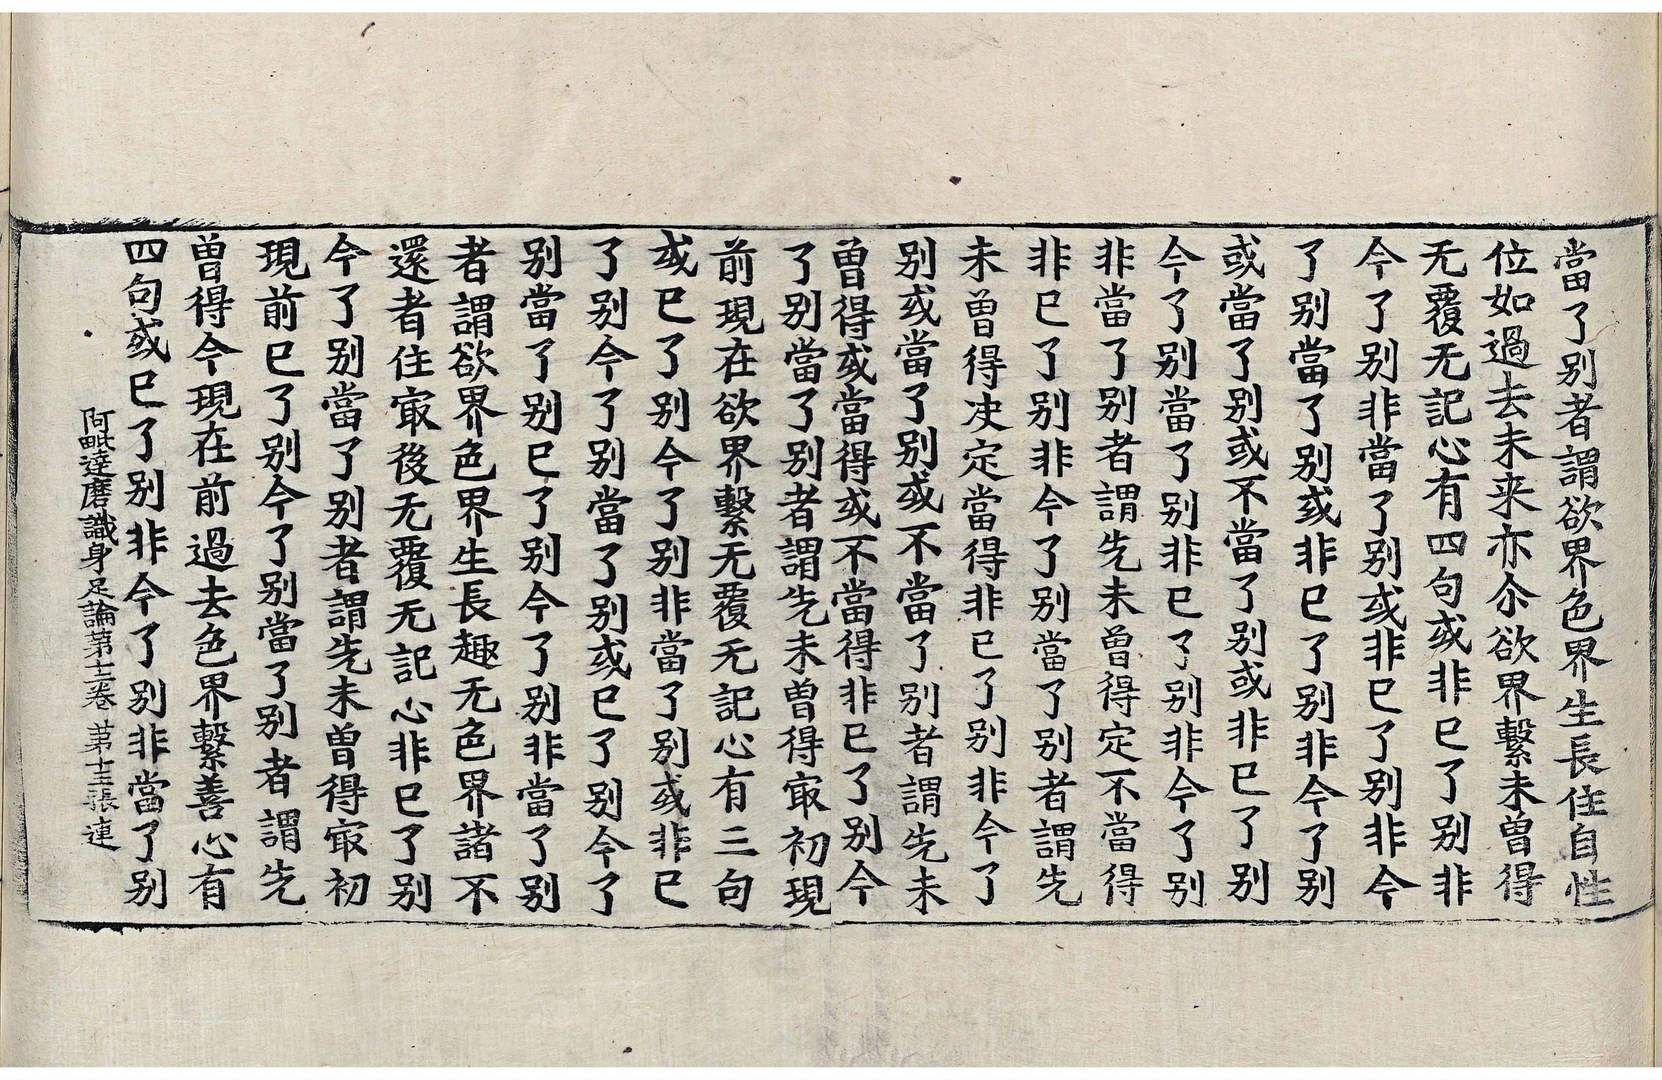 當了别者謂欲界色界生長住自性
位如過去未来亦尒欲界繫未曽得
无覆无記心有四句或非已了别非
今了别非當了别或非已了别非今
了别當了别或非已了别非今了别
或當了别或不當了别或非已了别
今了别當了别非已了别非今了别
非當了别者謂先未曽得定不當得
非已了别非今了别當了别者謂先
未曽得决定當得非已了别非今了
别或當了别或不當了别者謂先未
曽得或當得或不當得非已了别今
了别當了别者謂先未曽得㝡初現
前現在欲界繫无覆无記心有三句
或已了别今了别非當了别或非已
了别今了别當了别或已了别今了
别當了别已了别今了别非當了别
者謂欲界色界生長趣无色界諸不
還者住㝡後无覆无記心非已了别
今了别當了别者謂先未曽得㝡初
現前已了别今了别當了别者謂先
曽得今現在前過去色界繫善心有
四句或已了别非今了别非當了别
阿毗達磨識身足論第十二卷 第十三張 連